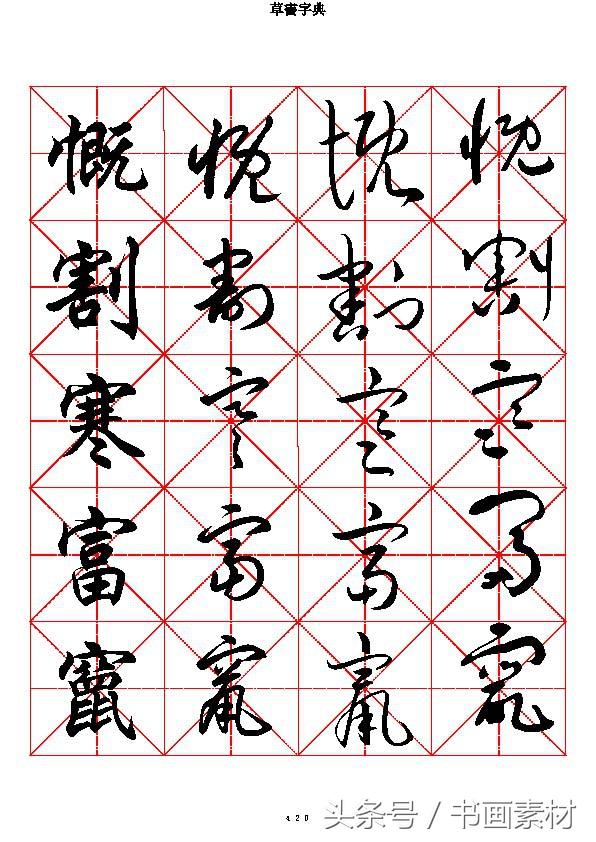 草書字典
慨 慨 慨 慨
割 割 割 割
寒 寒 寒 寒
富 富 富 富
竄 竄 竄 竄
420
头条号 / 书画素材